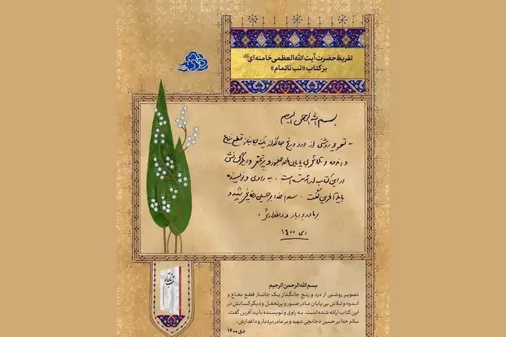 تقریظ حضرت آیت الله العظمی خامنه ای
بر کتاب «تب ناتمام»
بسم الله الرحمن الرحیم
تصویر روشنی از درد و رنج جانگداز یک جانباز قطع نخاع
و اندوه و تلاش بی پایان مادر صبور و پرتحمل و دیگر کسانش
در این کتاب ارائه شده است. به راوی و نویسنده
باید آفرین گفت. سلام خدا بر حسین دخانچی شهید و
بر مادر بردبار و داغدارش.
دی ۱۴۰۰
بسم الله الرحمن الرحیم
تصویر روشنی از درد و رنج جانگداز یک جانباز قطع نخاع و
اندوه و تلاش بی‌پایان مادر صبور و پرتحمل و دیگر کسانش در
این کتاب ارائه شده است. به راوی و نویسنده باید آفرین گفت.
سلام خدا بر حسین دخانچی شهید و بر مادر بردبار و داغدارش.
دی ۱۴۰۰